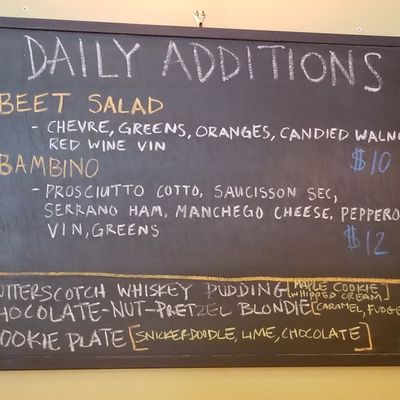 DAILY ADDITIONS
BEET SALAD
- CHEVRE, GREENS, ORANGES, CANDIED WALNU
RED WINE VIN
$10
BAMBINO
- PROSCIUTTO COTTO, SAUCISSON SEC,
SERRANO HAM, MANCHEGO CHEESE, PEPPERO
VIN, GREENS
$12
UTTERSCOTCH WHISKEY PUDDING [MAPLE COOKIE
WHIPPED CREAM]
HOCOLATE-NUT-PRETZEL BLONDIE [CARAMEL, FUDGE
OOKIE PLATE [SNICKERDOODLE, LIME, CHOCOLATE]